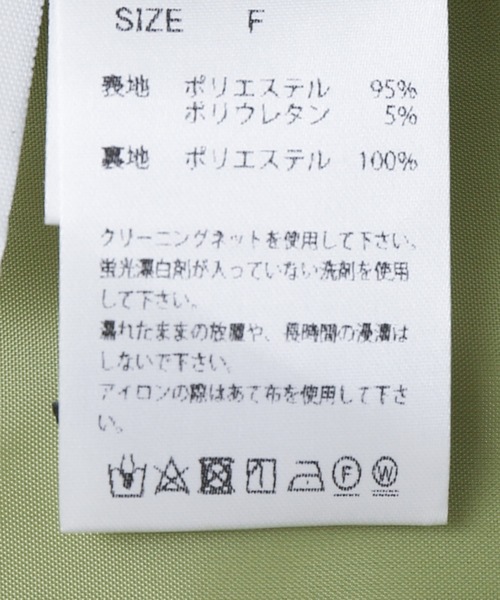 SIZE F
表地 ポリエステル 95%
ポリウレタン 5%
裏地 ポリエステル 100%
クリーニングネットを使用して下さい。
蛍光漂白剤が入っていない洗剤を使用
して下さい。
濡れたままの放置や、長時間の浸漬は
しないで下さい。
アイロンの際はあて布を使用して下さ
い。
F W